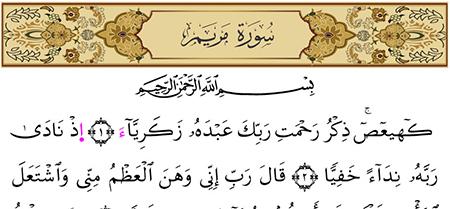 سُورَةُ مَرْيَم
بِسْمِ ٱللَّهِ ٱلرَّحْمَٰنِ ٱلرَّحِيمِ
كٓهيعٓصٓ ۚ ذِكْرُ رَحْمَتِ رَبِّكَ عَبْدَهُۥ زَكَرِيَّآءَ ﴿١﴾ إِذْ نَادَىٰ
رَبَّهُۥ نِدَآءً خَفِيًّا ﴿٢﴾ قَالَ رَبِّ إِنِّى وَهَنَ ٱلْعَظْمُ مِنِّى وَٱشْتَعَلَ